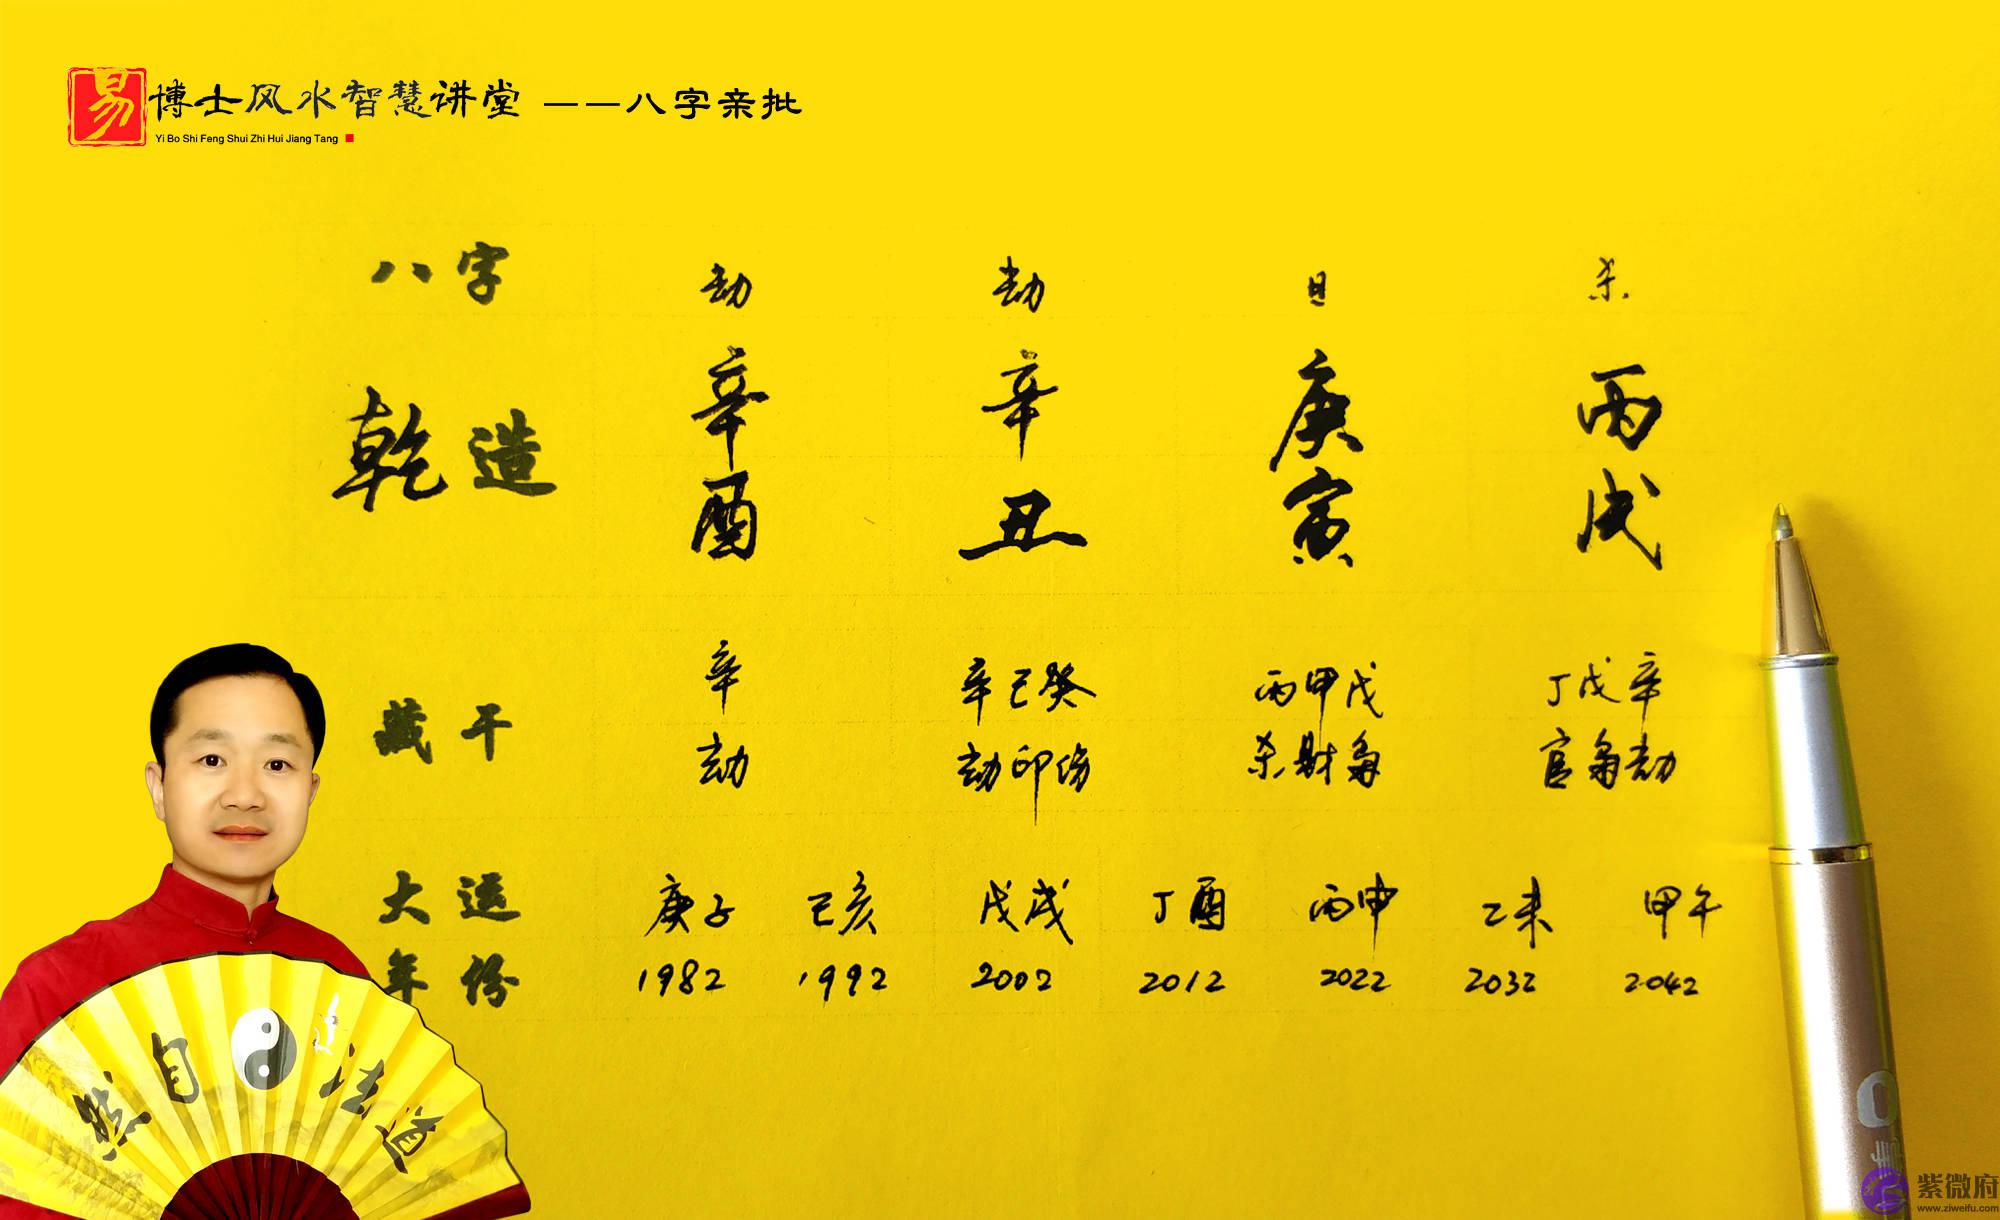 易博士风水智慧讲堂 ——八字亲批
Yi Bo Shi Feng Shui Zhi Hui Jiang Tang
八字 劫 劫 日 杀
乾造 辛酉 辛丑 庚寅 丙戌
藏干 辛 辛己癸 丙甲戊 丁戊辛
劫 劫印伤 杀财枭 官枭劫
大运 庚子 己亥 戊戌 丁酉 丙申 乙未 甲午
年份 1982 1992 2002 2012 2022 2032 2042
道法自然
紫微府
www.ziweifu.com